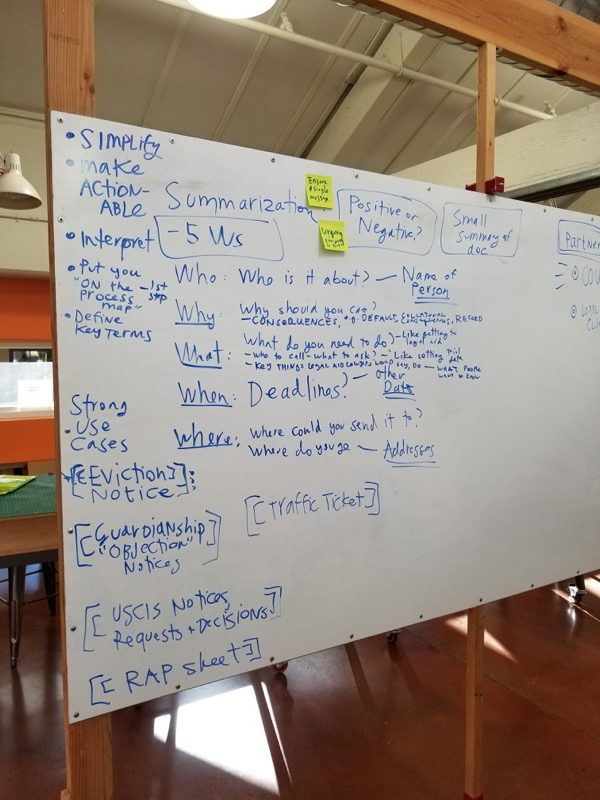 • SIMPLIFY
• make
ACTION-
ABLE
• Interpret
• Put you
"ON the - 1st
process step
map"
• Define
Key Terms
Summarization
- 5 Ws
Ensure
a single
message.
Urgency
Positive or
Negative?
Small
summary of
doc
Partner
Who: Who is it about? — Name of
Person
Why: Why should you care?
- CONSEQUENCES, e.g. DEFAULT, COLLATERAL CONSEQUENCES, RECORD
What: What do you need to do? - Like getting to
legal aid
- who to call - what to ask? - Like setting trial
date
- KEY THINGS LEGAL AID LAWYERS WOULD SAY, DO — WHAT PEOPLE
WANT TO KNOW
When: Deadlines? — Other
Dates
Where: Where could you send it to?
Where do you go — Addresses
Strong
Use
Cases
[[Eviction]]:
Notice
[[Traffic Ticket]]
[[Guardianship
"OBJECTION"
Notices]]
[[USCIS Notices,
Requests + Decisions]]
[[RAP sheet]]